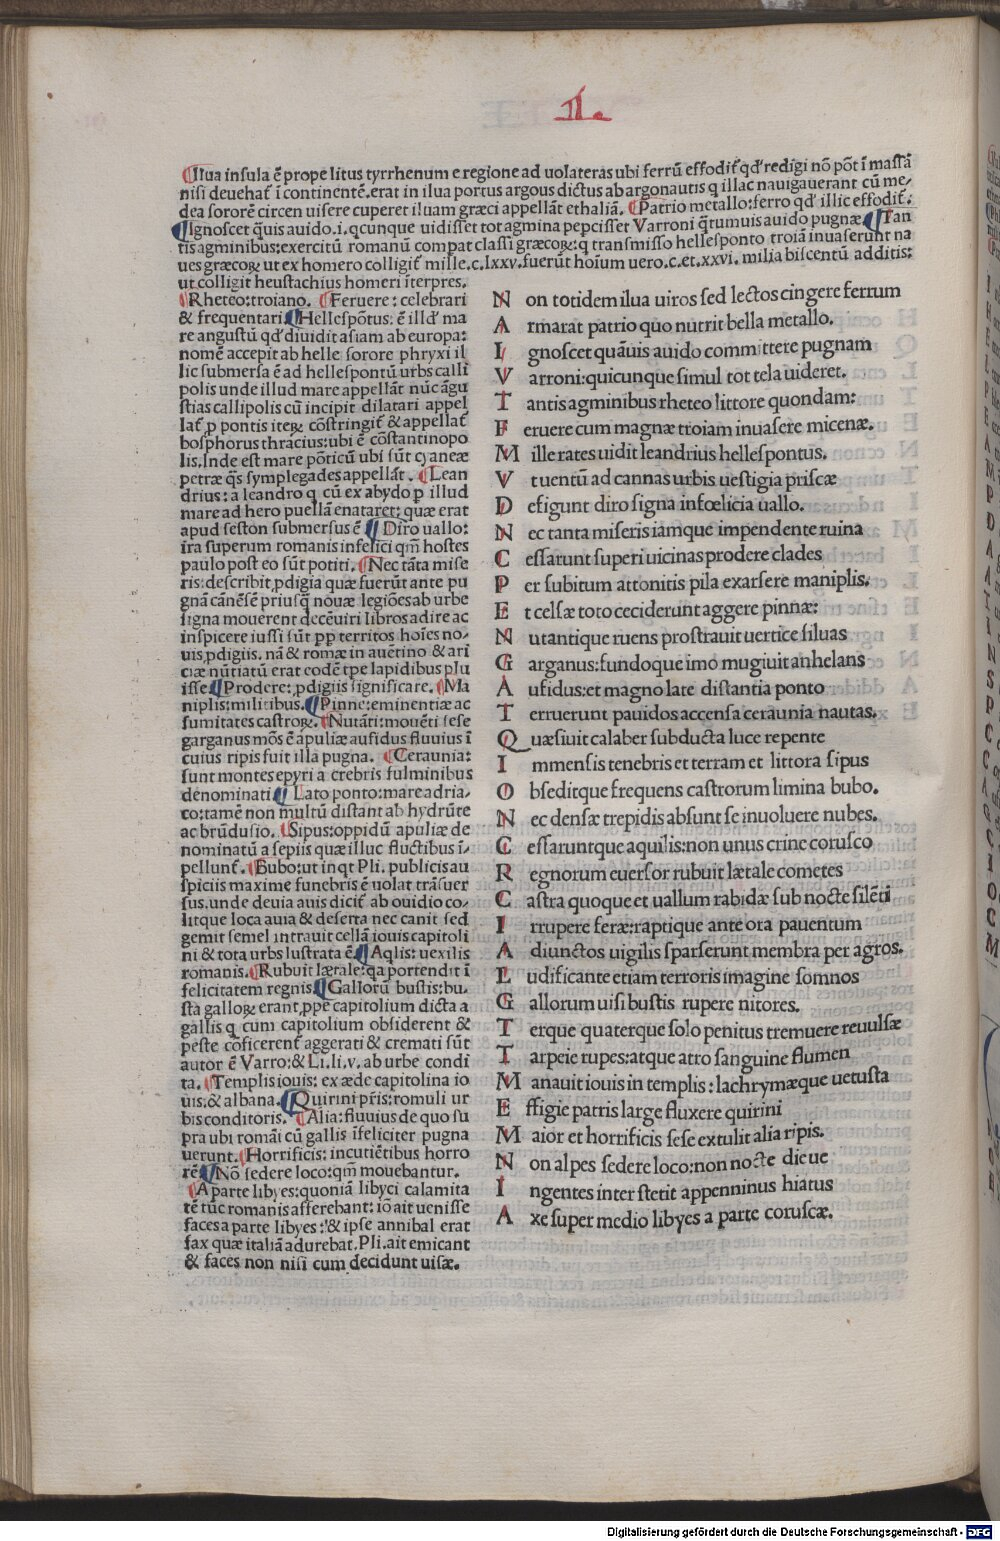 II.
¶Ilua insula ē prope litus tyrrhenum e regione ad uolateras ubi ferrū effodiť qđ redigi nō pōt ī massā
nisi deuehať ī continentē. erat in ilua portus argous dictus ab argonautis q illac nauigauerant cū me-
dea sororē circen uisere cuperet iluam græci appellāt ethaliā. ¶Patrio metallo: ferro qđ illic effodiť.
¶Ignoscet q̄uis auido .i. qcunque uidisset tot agmina pepcisset Varroni q̄rumuis auido pugnæ ¶Tan
tis agminibus: exercitū romanū compat classi græcoꝝ: q transmisso hellesponto troiā inuaserunt na
ues græcoꝝ ut ex homero colligiť mille.c.lxxv. fuerūt hoīum uero.c.et.xxvi. milia biscentū additis:
ut colligit heustachius homeri īterpres.
¶Rheteo: troiano. ¶Feruere: celebrari
& frequentari ¶Hellespōtus: ē illđ ma
re angustū qđ diuidit asiam ab europa:
nomē accepit ab helle sorore phryxi il
lic submersa ē ad hellespontū urbs calli
polis unde illud mare appellāt nūc āgu
stias callipolis cū incipit dilatari appel
lať p pontis iteꝝ cōstringiť & appellať
bosphorus thracius: ubi ē cōstantinopo
lis. Inde est mare pōticū ubi sūt cyaneæ
petræ q̄s symplegades appellāt. ¶Lean
drius: a leandro q cū ex abydo p illud
mare ad hero puellā enataret: quæ erat
apud seston submersus ē ¶Diro uallo:
ira superum romanis infelici qm̄ hostes
paulo post eo sūt potiti. ¶Nec tāta mise
ris: describit pdigia quæ fuerūt ante pu
gnā cānēsē priusq̄ nouæ legiōes ab urbe
signa mouerent decēuiri libros adire ac
inspicere iussi sūt pp territos hoīes no-
uis pdigiis. nā & romæ in auētino & ari
ciæ nūtiatū erat codē tp̄e lapidibus plu
isse ¶Prodere: pdigiis significare. ¶Ma
niplis: militibus. ¶Pinne: eminentiæ ac
sumitates castroꝝ. ¶Nutāti: mouēti sese
garganus mōs ē apuliæ aufidus fluuius ī
cuius ripis fuit illa pugna. ¶Ceraunia:
sunt montes epyri a crebris fulminibus
denominati ¶Lato ponto: mare adria-
co: tamē non multū distant ab hydrūte
ac brūdusio. ¶Sipus: oppidū apuliæ de
nominatū a sepiis quæ illuc fluctibus ī-
pellunť. ¶Bubo: ut inqt Pli. publicis au
spiciis maxime funebris ē uolat trāsuer
sus. unde deuia auis diciť ab ouidio co-
litque loca auia & deserta nec canit sed
gemit semel intrauit cellā iouis capitoli
ni & tota urbs lustrata ē ¶Aqlis: uexilis
romanis. ¶Rubuit lærale: qa portendit ī
felicitatem regnis ¶Gallorū bustis: bu-
sta galloꝝ erant ppe capitolium dicta a
gallis q cum capitolium obsiderent &
peste cōficerenť aggerati & cremati sūt
autor ē Varro: & Li. li. v. ab urbe condi
ta. ¶Templis iouis: ex æde capitolina io
uis: & albana. ¶Quirini pr̄is: romuli ur
bis conditoris. ¶Alia: fluuius de quo su
pra ubi romāi cū gallis īfeliciter pugna
uerunt. ¶Horrificis: incutiētibus horro
rē ¶Nō sedere loco: qm̄ mouebantur.
¶A parte libyes: quoniā libyci calamita
tē tūc romanis afferebant: iō ait uenisse
faces a parte libyes: & ipse annibal erat
fax quæ italiā adurebat. Pli. ait emicant
& faces non nisi cum decidunt uisæ.
N on totidem ilua uiros sed lectos cingere ferrum
A rmarat patrio quo nutrit bella metallo.
I gnoscet quāuis auido committere pugnam
V arroni: quicunque simul tot tela uideret.
T antis agminibus rheteo littore quondam:
F eruere cum magnæ troiam inuasere micenæ.
M ille rates uidit leandrius hellespontus.
V t uentū ad cannas urbis uestigia priscæ
D efigunt diro signa infœlicia uallo.
N ec tanta miseris iamque impendente ruina
C essarunt superi uicinas prodere clades
P er subitum attonitis pila exarsere maniplis.
E t celsæ toto ceciderunt aggere pinnæ:
N utantique ruens prostrauit uertice siluas
G arganus: fundoque imo mugiuit anhelans
A ufidus: et magno late distantia ponto
T erruerunt pauidos accensa ceraunia nautas.
Q uæsiuit calaber subducta luce repente
I mmensis tenebris et terram et littora sipus
O bseditque frequens castrorum limina bubo.
N ec densæ trepidis absunt se inuoluere nubes.
C essaruntque aquilis: non unus crine corusco
R egnorum euersor rubuit lætale cometes
C astra quoque et uallum rabidæ sub nocte silēti
I rrupere feræ: raptique ante ora pauentum
A diunctos uigilis sparserunt membra per agros.
L udificante etiam terroris imagine somnos
G allorum uisi bustis rupere nitores.
T erque quaterque solo penitus tremuere reuulsæ
T arpeie rupes: atque atro sanguine flumen
M anauit iouis in templis: lachrymæque uetusta
E ffigie patris large fluxere quirini
M aior et horrificis sese extulit alia ripis.
N on alpes sedere loco: non nocte die ue
I ngentes inter stetit appenninus hiatus
A xe super medio libyes a parte coruscæ.
Digitalisierung gefördert durch die Deutsche Forschungsgemeinschaft - DFG